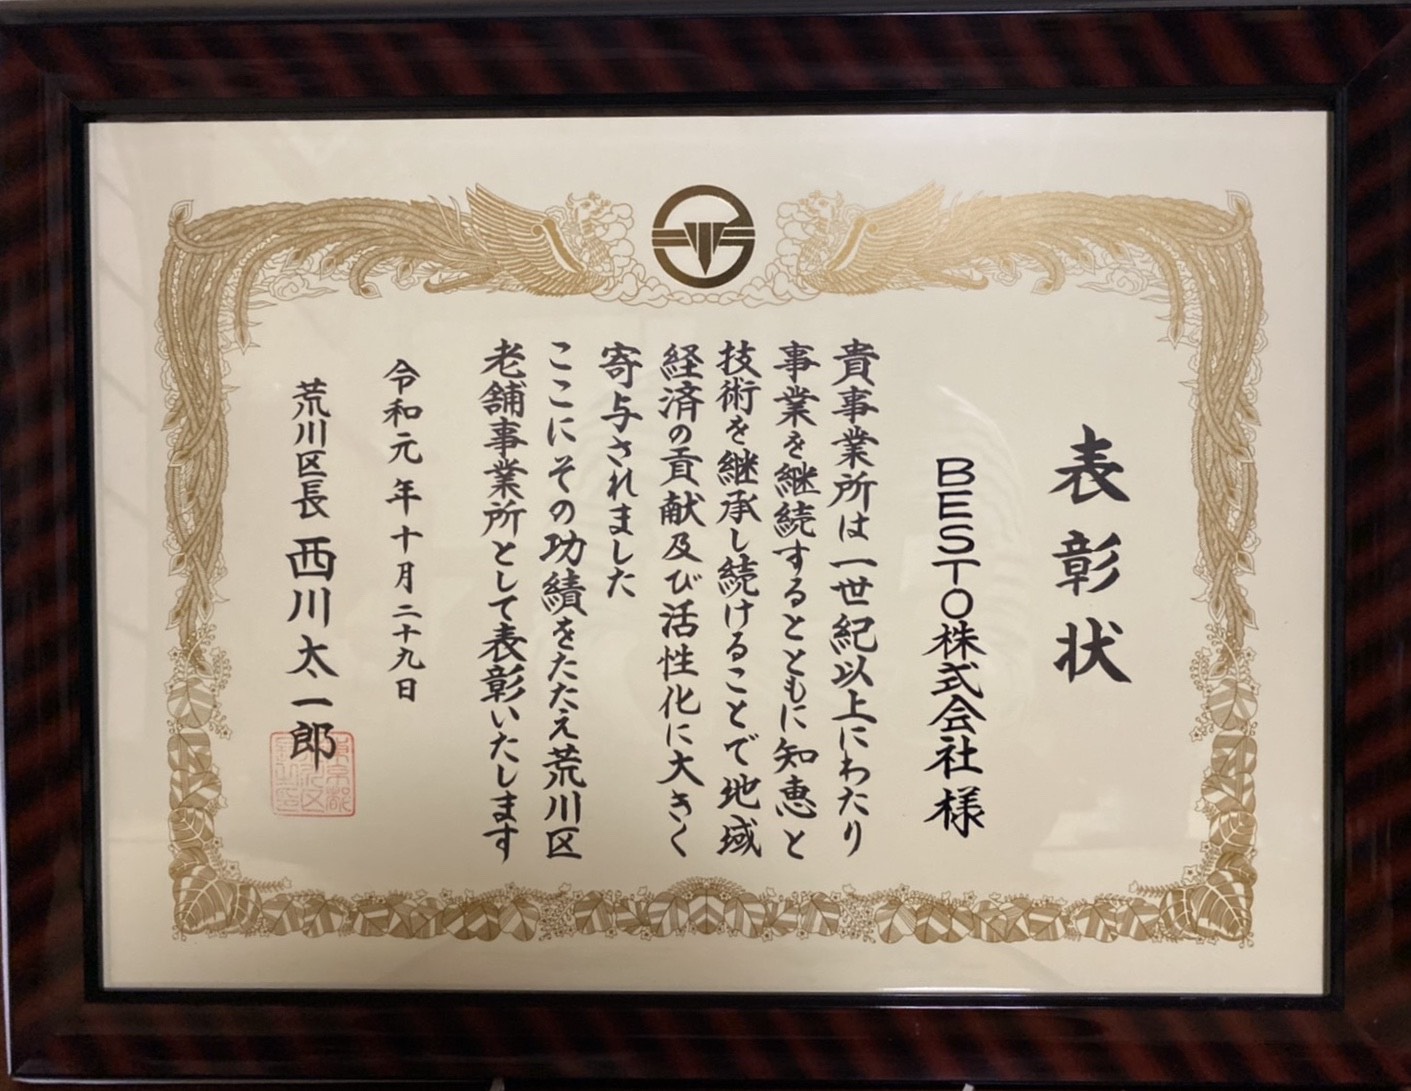 表彰状
BESTO株式会社様
貴事業所は一世紀以上にわたり
事業を継続するとともに知恵と
技術を継承し続けることで地域
経済の貢献及び活性化に大きく
寄与されました
ここにその功績をたたえ荒川区
老舗事業所として表彰いたします
令和元年十月二十九日
荒川区長 西川太一郎